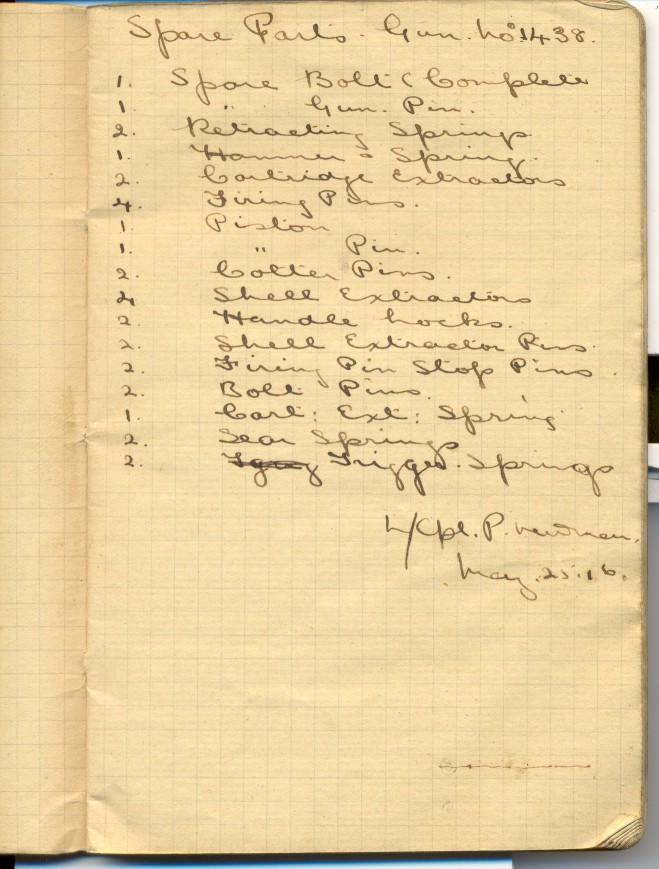 Spare Parts. Gun. No 1438.
1. Spare Bolt (Complete
1. " Gun. Pin.
2. Retracting Springs
1. Hammer = Spring.
2. Cartridge Extractors
4. Firing Pins.
1. Piston
1. " Pin.
2. Cotter Pins.
4 Shell Extractors
2. Handle Locks.
2. Shell Extractor Pins.
2. Firing Pin Stop Pins.
2. Bolt Pins.
1. Cart: Ext: Spring
2. Sear Springs
2. Trigger. Springs
L/Cpl. P. Newman.
May. 25.16.